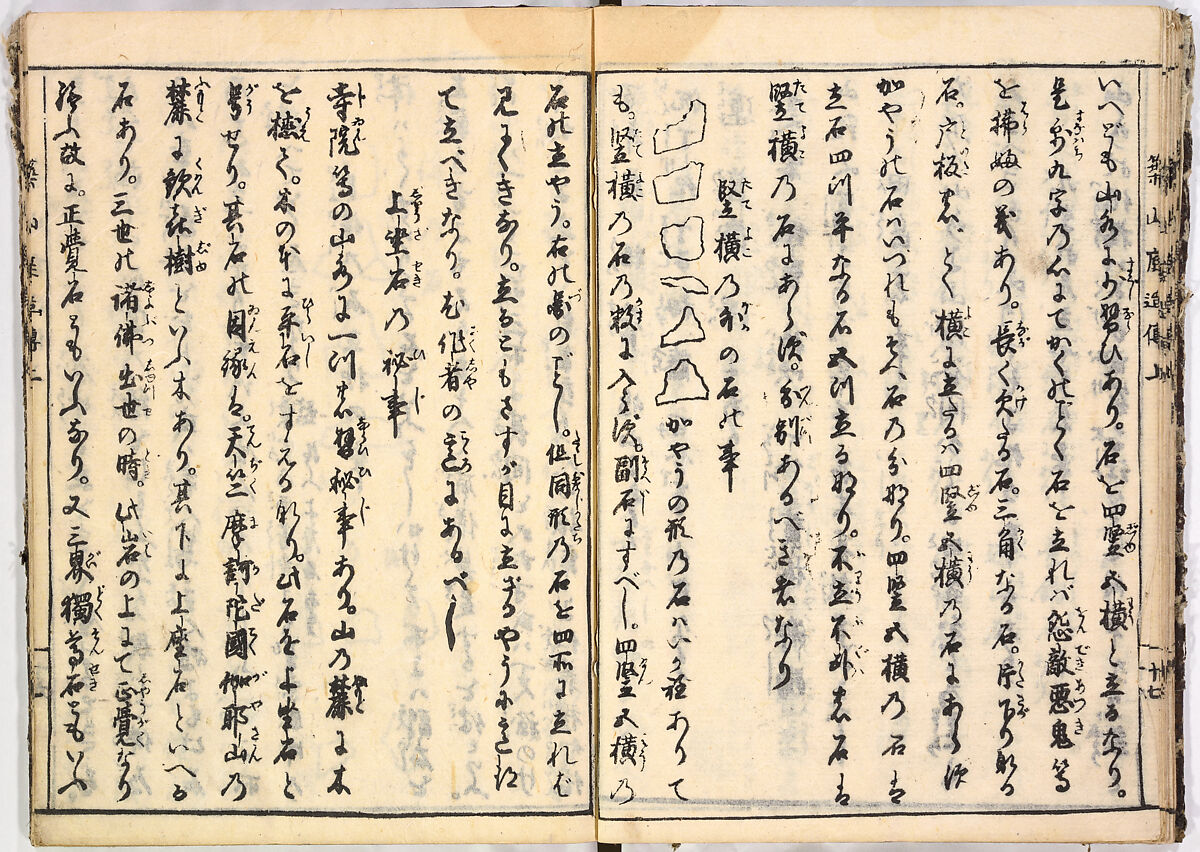 いへども山水に少習ひあり。石を四竪五横と立るなり。
是即九字乃心にてかくのごとく石を立れバ怨敵悪鬼等
を拂ふの義あり。長く欠たる石。三角なる石。片下りなる
石。戸板石。とて横に立たるハ四竪五横乃石にあらず
かやうの石ハいづれもそへ石乃分なり。四竪五横乃石は
立石四ツ平なる石五ツ立る也。不立不外
竪横乃石にあらず。分別あるべき者なり
竪横乃外の石の事
かやうの形乃石ハいか程ありて
も。竪横乃石乃数に入らず。副石にすべし。四竪五横乃
石の立やう。右の図のごとし。但同形乃石を四所に立れば
見にくきなり。立るともさすが目に立ざるやうに
て立べきなり。作者の意にあるべし
上坐石乃秘事
寺院等の山水に一ツ習秘事あり。山乃麓に木
を植て。木の本に平石をすゆる也。此石を上坐石と
号せり。其石の因縁は。天竺摩訶陀國伽耶山乃
麓に歓喜樹といふ木あり。其下に上座石といへる
石あり。三世の諸佛出世の時。此石の上にて正覚なり
給ふ故に。正覚石ともいふなり。又三界獨尊石ともいふ
築山庭造傳上
十七